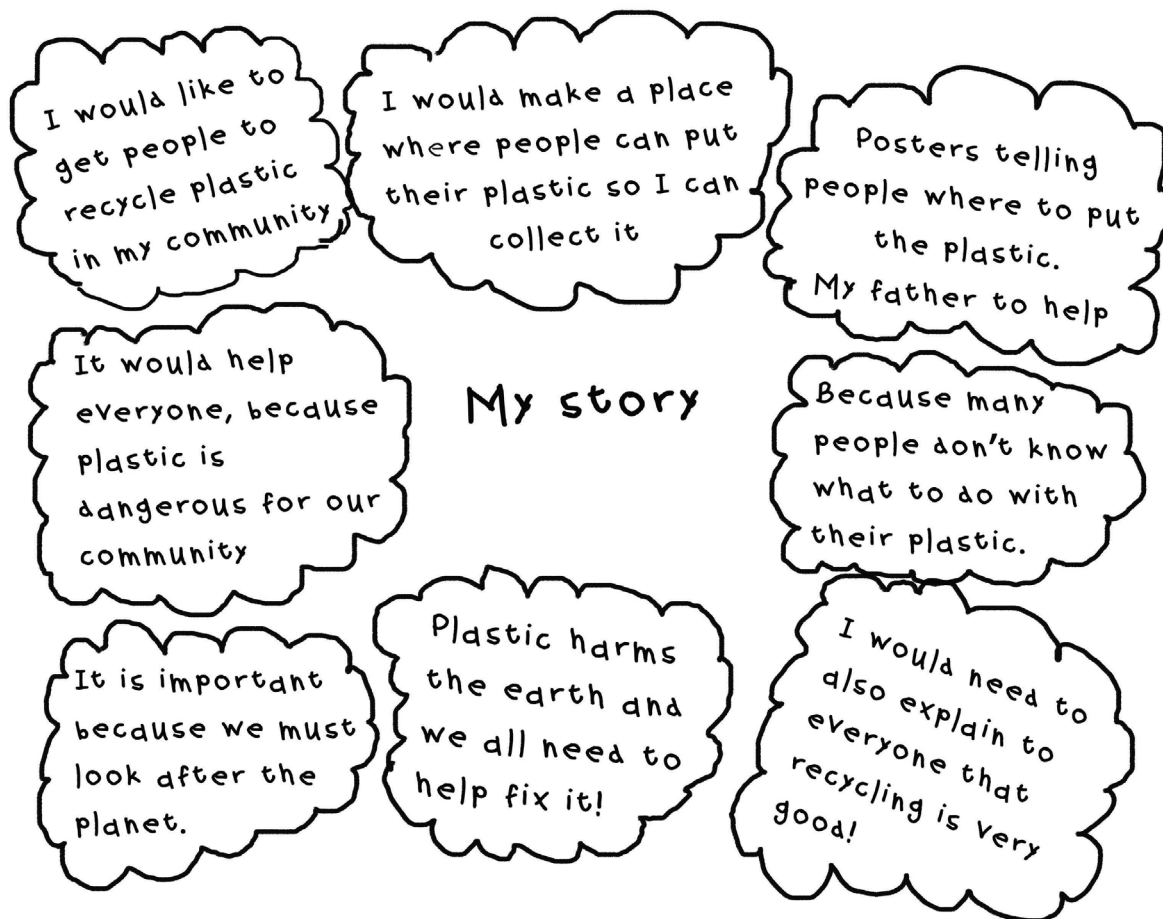 I would like to
get people to
recycle plastic
in my community
I would make a place
where people can put
their plastic so I can
collect it
Posters telling
people where to put
the plastic.
My father to help
It would help
everyone, because
plastic is
dangerous for our
community
My story
Because many
people don't know
what to do with
their plastic.
It is important
because we must
look after the
planet.
Plastic harms
the earth and
we all need to
help fix it!
I would need to
also explain to
everyone that
recycling is very
good!